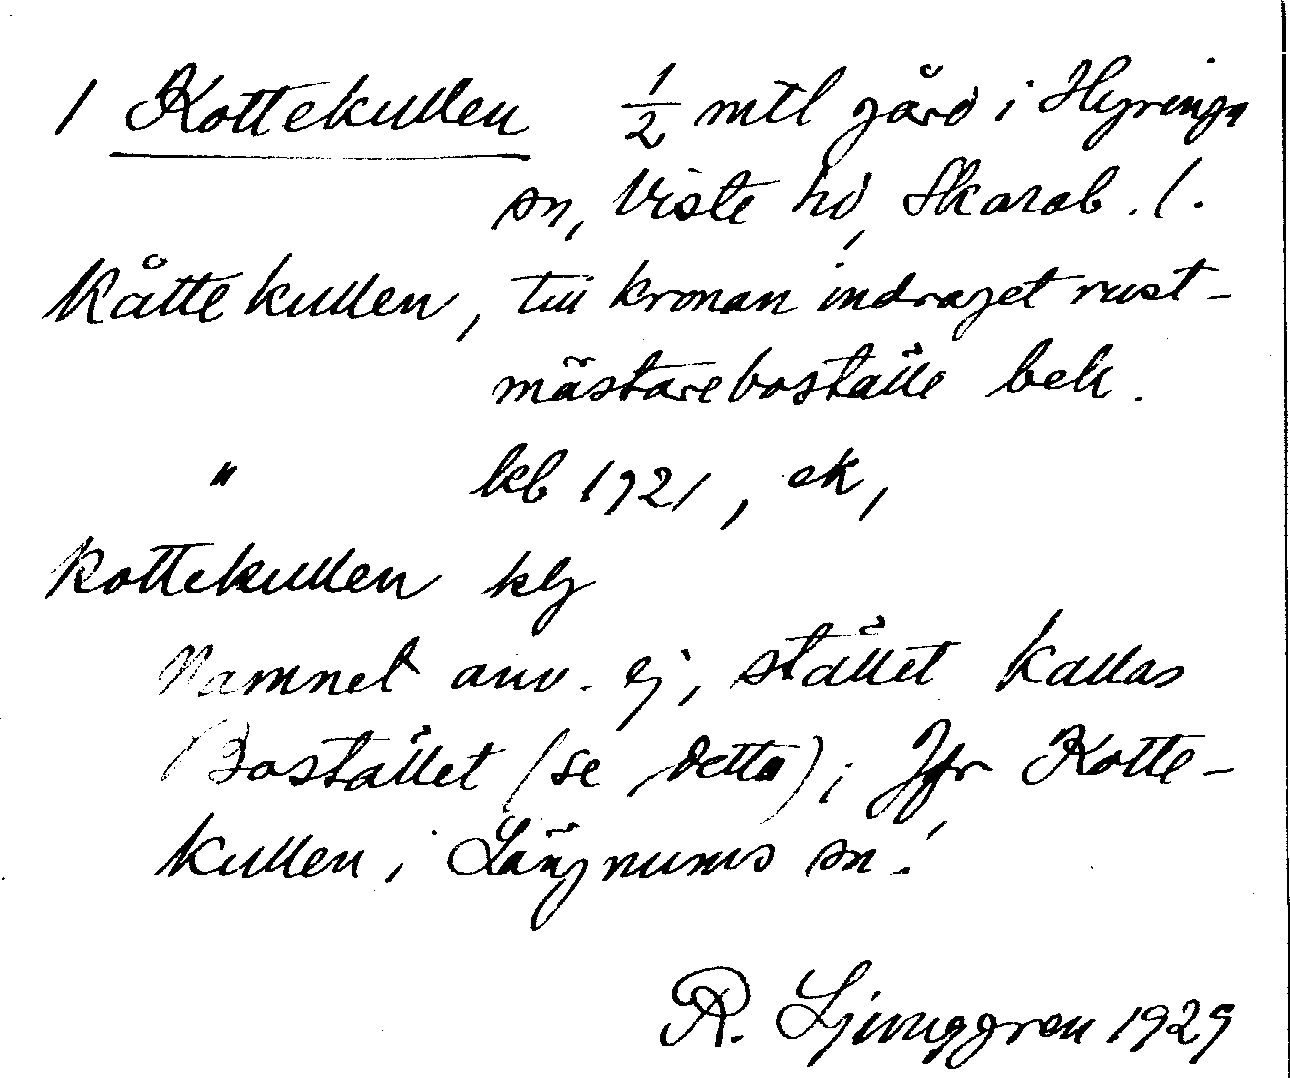 1 Kottekullen ½ mtl gård i Hyringa
sn, Viste hd, Skarab. l.
Kåttekullen, till kronan indraget rust-
mästareboställe bek.
" kb 1921, ek,
Kottekullen klj
Namnet anv. ej, stället kallas
Bostället (se detta); Jfr Kotte-
kullen i Längnums sn!
R. Ljunggren 1929